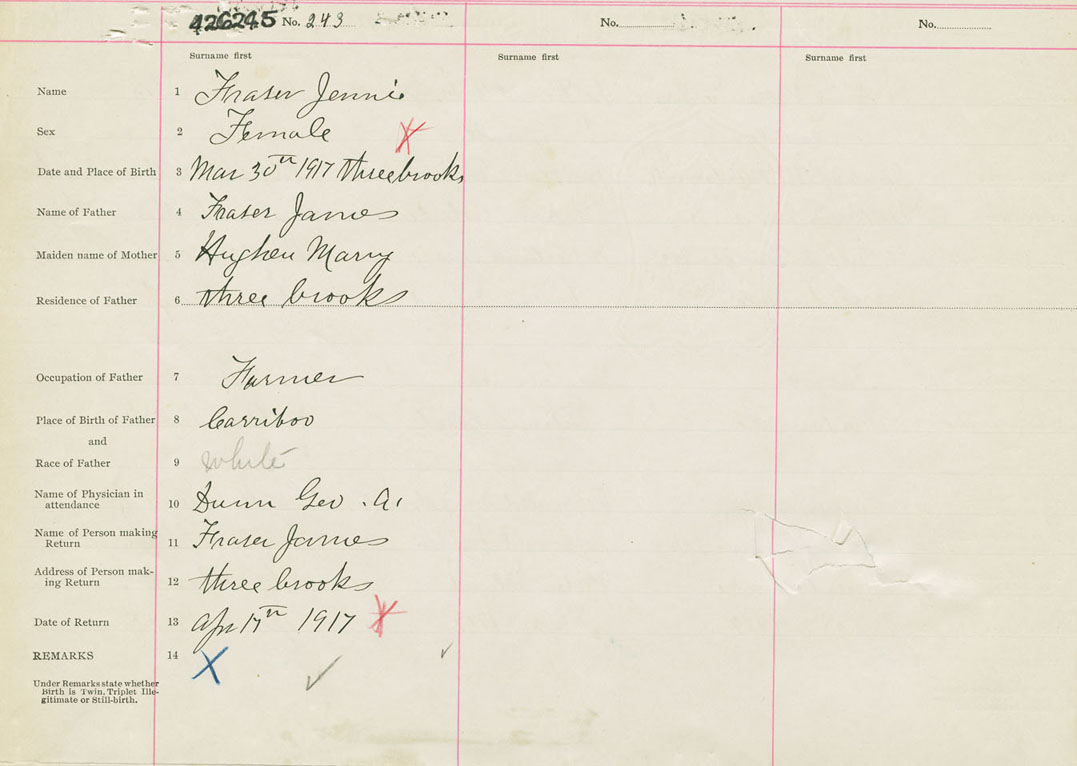 426245 No. 243 No. No.
Surname first Surname first Surname first
Name 1 Fraser Jennie
Sex 2 Female
Date and Place of Birth 3 Mar 30th 1917 three brooks
Name of Father 4 Fraser James
Maiden name of Mother 5 Hughen Marry
Residence of Father 6 three brooks
Occupation of Father 7 Farmer
Place of Birth of Father 8 Carriboo
and
Race of Father 9 white
Name of Physician in
attendance 10 Dunn Geo. A.
Name of Person making
Return 11 Fraser James
Address of Person mak-
ing Return 12 three brooks
Date of Return 13 Apr 17th 1917
REMARKS 14
Under Remarks state whether
Birth is Twin, Triplet Ille-
gitimate or Still-birth.